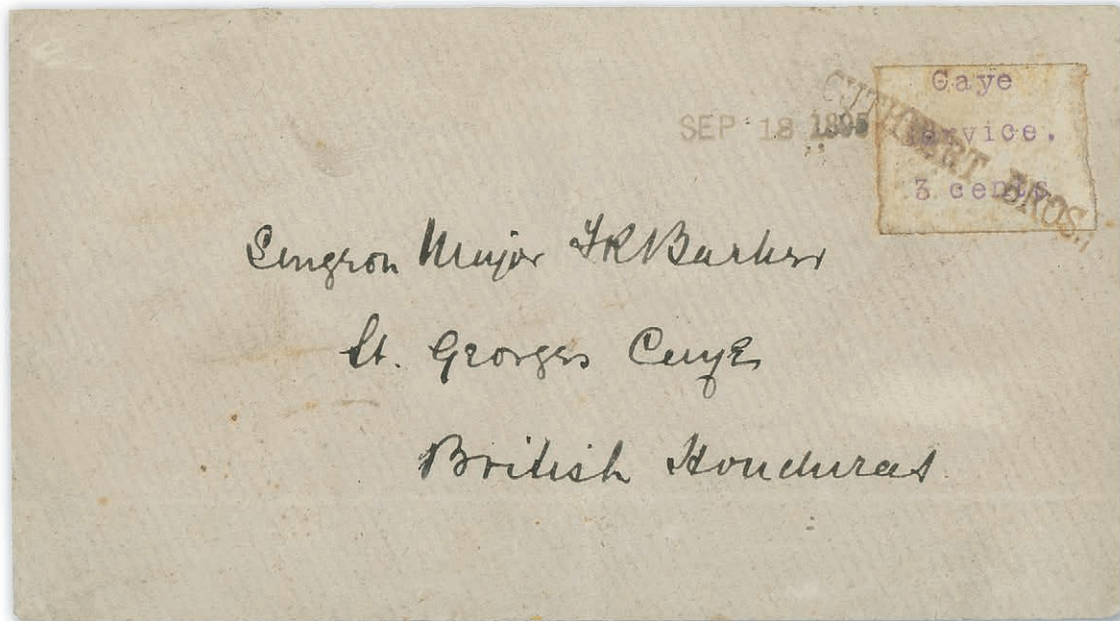 SEP 18 1895
CUTHBERT BROS.
Gaye
Service.
3 cents
Surgeon Major
St. Georges Caye
British Honduras